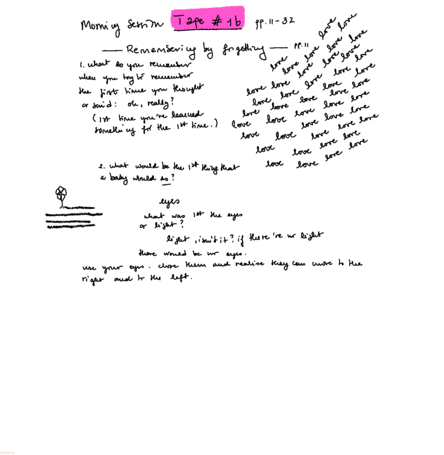 Morning Session Tape # 1b pp. 11-32
— Remembering by forgetting — pp. 11
1. what do you remember
when you try to remember
the first time you thought
or said: oh, really?
(1st time you've learned
something for the 1st time.)
love
love love
love love love
love love love love
love love love love
love love love love love
love love love love love
love love love love love
love love love love love
love love love love
love love love love
2. what would be the 1st thing that
a baby would do?
eyes
what was 1st the eyes
or light?
light, isn't it? if there're no light
there would be no eyes.
use your eyes. close them and realise they can move to the
right and to the left.